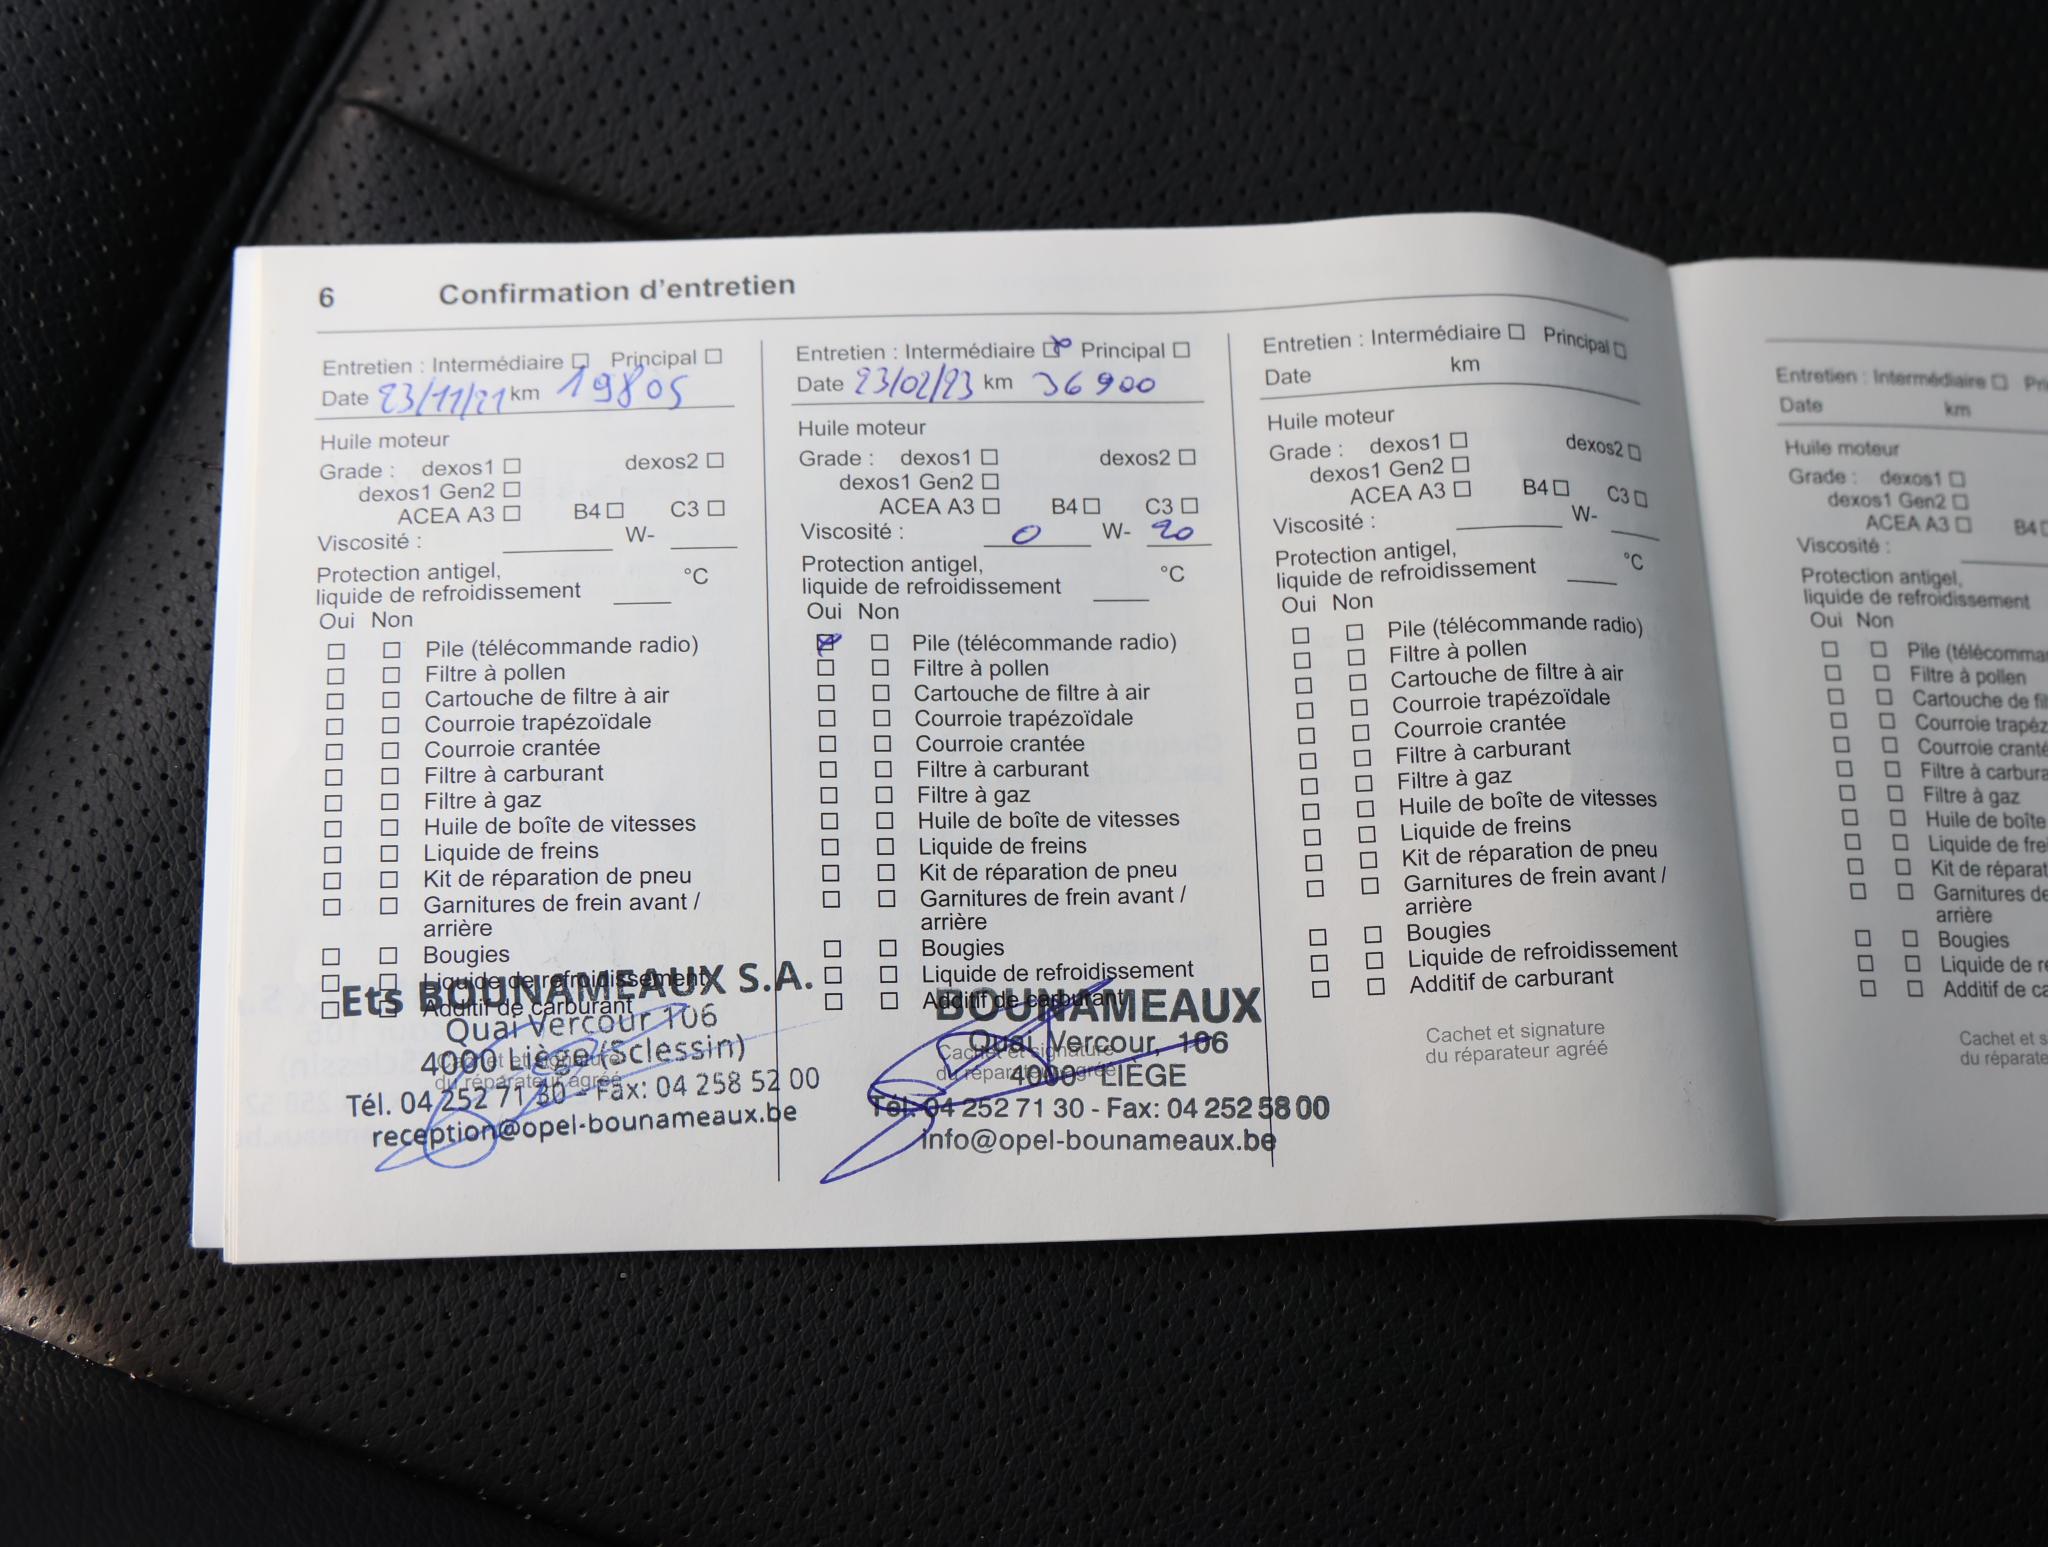 6 Confirmation d'entretien
Entretien : Intermédiaire ☐ Principal ☐
Date 23/11/21 km 19805
Huile moteur
Grade : dexos1 ☐ dexos2 ☐
dexos1 Gen2 ☐
ACEA A3 ☐ B4 ☐ C3 ☐
Viscosité : ____ W- ____
Protection antigel, °C
liquide de refroidissement ____
Oui Non
☐ ☐ Pile (télécommande radio)
☐ ☐ Filtre à pollen
☐ ☐ Cartouche de filtre à air
☐ ☐ Courroie trapézoïdale
☐ ☐ Courroie crantée
☐ ☐ Filtre à carburant
☐ ☐ Filtre à gaz
☐ ☐ Huile de boîte de vitesses
☐ ☐ Liquide de freins
☐ ☐ Kit de réparation de pneu
☐ ☐ Garnitures de frein avant /
arrière
☐ ☐ Bougies
☐ ☐ Liquide de refroidissement
☐ ☐ Additif de carburant
Cachet et signature
du réparateur agréé
Ets BOUNAMEAUX S.A.
Quai Vercour 106
4000 Liège (Sclessin)
Tél. 04 252 71 30 - Fax: 04 258 52 00
reception@opel-bounameaux.be
Entretien : Intermédiaire ☒ Principal ☐
Date 23/02/23 km 36900
Huile moteur
Grade : dexos1 ☐ dexos2 ☐
dexos1 Gen2 ☐
ACEA A3 ☐ B4 ☐ C3 ☐
Viscosité : 0 W- 20
Protection antigel, °C
liquide de refroidissement ____
Oui Non
☒ ☐ Pile (télécommande radio)
☐ ☐ Filtre à pollen
☐ ☐ Cartouche de filtre à air
☐ ☐ Courroie trapézoïdale
☐ ☐ Courroie crantée
☐ ☐ Filtre à carburant
☐ ☐ Filtre à gaz
☐ ☐ Huile de boîte de vitesses
☐ ☐ Liquide de freins
☐ ☐ Kit de réparation de pneu
☐ ☐ Garnitures de frein avant /
arrière
☐ ☐ Bougies
☐ ☐ Liquide de refroidissement
☐ ☐ Additif de carburant
Cachet et signature
du réparateur agréé
BOUNAMEAUX
Quai Vercour, 106
4000 LIÈGE
Tél. 04 252 71 30 - Fax: 04 252 58 00
info@opel-bounameaux.be
Entretien : Intermédiaire ☐ Principal ☐
Date km
Huile moteur
Grade : dexos1 ☐ dexos2 ☐
dexos1 Gen2 ☐
ACEA A3 ☐ B4 ☐ C3 ☐
Viscosité : ____ W- ____
Protection antigel, °C
liquide de refroidissement ____
Oui Non
☐ ☐ Pile (télécommande radio)
☐ ☐ Filtre à pollen
☐ ☐ Cartouche de filtre à air
☐ ☐ Courroie trapézoïdale
☐ ☐ Courroie crantée
☐ ☐ Filtre à carburant
☐ ☐ Filtre à gaz
☐ ☐ Huile de boîte de vitesses
☐ ☐ Liquide de freins
☐ ☐ Kit de réparation de pneu
☐ ☐ Garnitures de frein avant /
arrière
☐ ☐ Bougies
☐ ☐ Liquide de refroidissement
☐ ☐ Additif de carburant
Cachet et signature
du réparateur agréé
Entretien : Intermédiaire ☐ Pri
Date km
Huile moteur
Grade : dexos1 ☐
dexos1 Gen2 ☐
ACEA A3 ☐ B4
Viscosité :
Protection antigel,
liquide de refroidissement
Oui Non
☐ ☐ Pile (télécomma
☐ ☐ Filtre à pollen
☐ ☐ Cartouche de fil
☐ ☐ Courroie trapéz
☐ ☐ Courroie cranté
☐ ☐ Filtre à carbura
☐ ☐ Filtre à gaz
☐ ☐ Huile de boîte
☐ ☐ Liquide de fre
☐ ☐ Kit de réparat
☐ ☐ Garnitures de
arrière
☐ ☐ Bougies
☐ ☐ Liquide de re
☐ ☐ Additif de ca
Cachet et s
du réparate